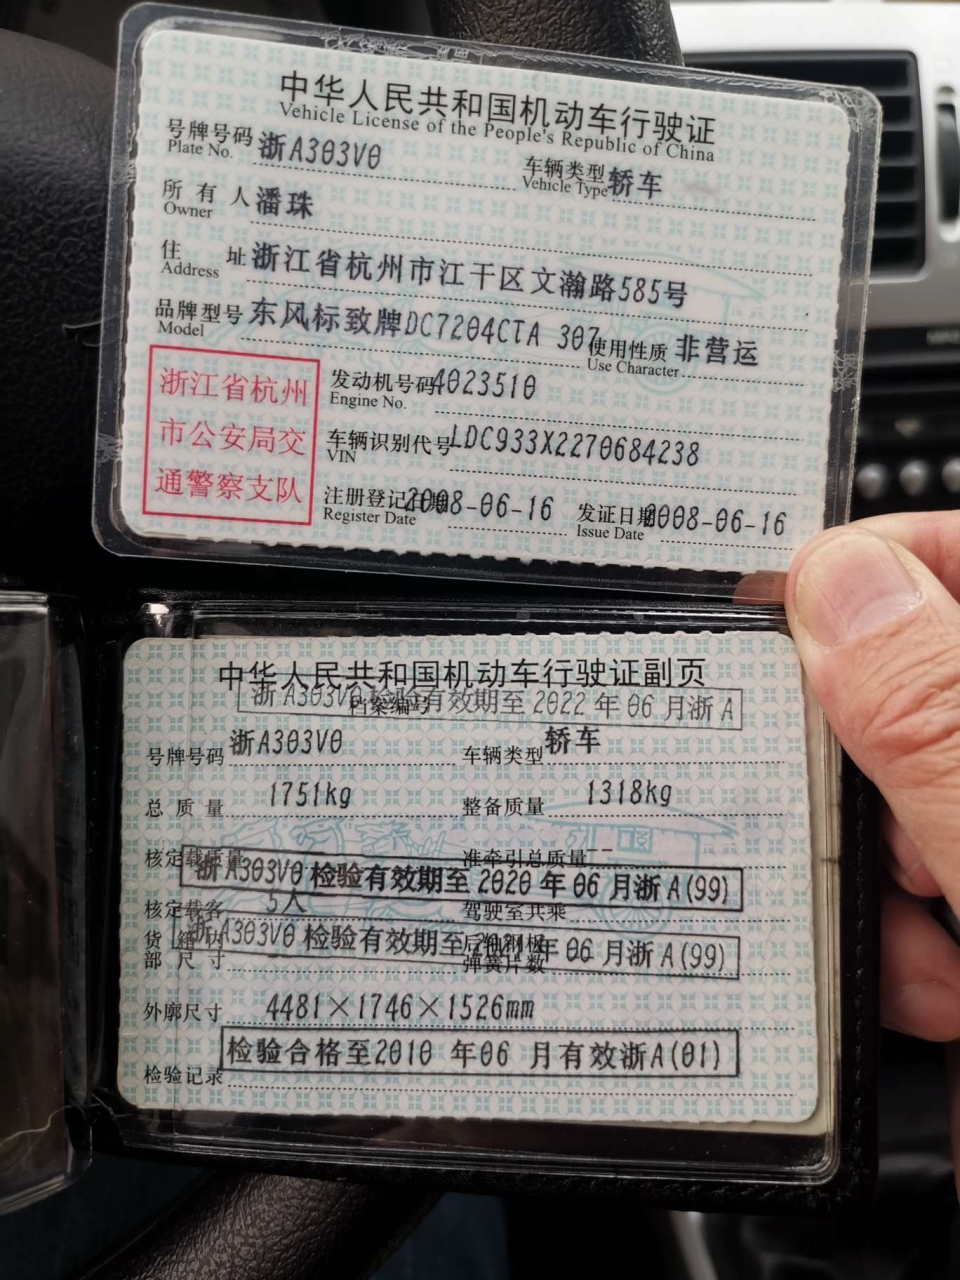 中华人民共和国机动车行驶证
Vehicle License of the People's Republic of China
号牌号码 浙A303V0 车辆类型 轿车
Plate No. Vehicle Type
所有人 潘珠
Owner
住址 浙江省杭州市江干区文瀚路585号
Address
品牌型号 东风标致牌DC7204CTA 307 使用性质 非营运
Model Use Character
浙江省杭州
市公安局交
通警察支队
发动机号码 4023510
Engine No.
车辆识别代号 LDC933X2270684238
VIN
注册登记日期 2008-06-16 发证日期 2008-06-16
Register Date Issue Date
中华人民共和国机动车行驶证副页
浙A303V0 检验有效期至2022年06月浙A
档案编号
号牌号码 浙A303V0 车辆类型 轿车
总质量 1751kg 整备质量 1318kg
核定载质量 准牵引总质量 --
浙A303V0 检验有效期至2020年06月浙A(99)
核定载客 5人 驾驶室共乘
浙A303V0 检验有效期至 年06月浙A(99)
货箱内 后轴钢板
部尺寸 弹簧片数
外廓尺寸 4481×1746×1526mm
检验合格至2010年06月有效浙A(01)
检验记录